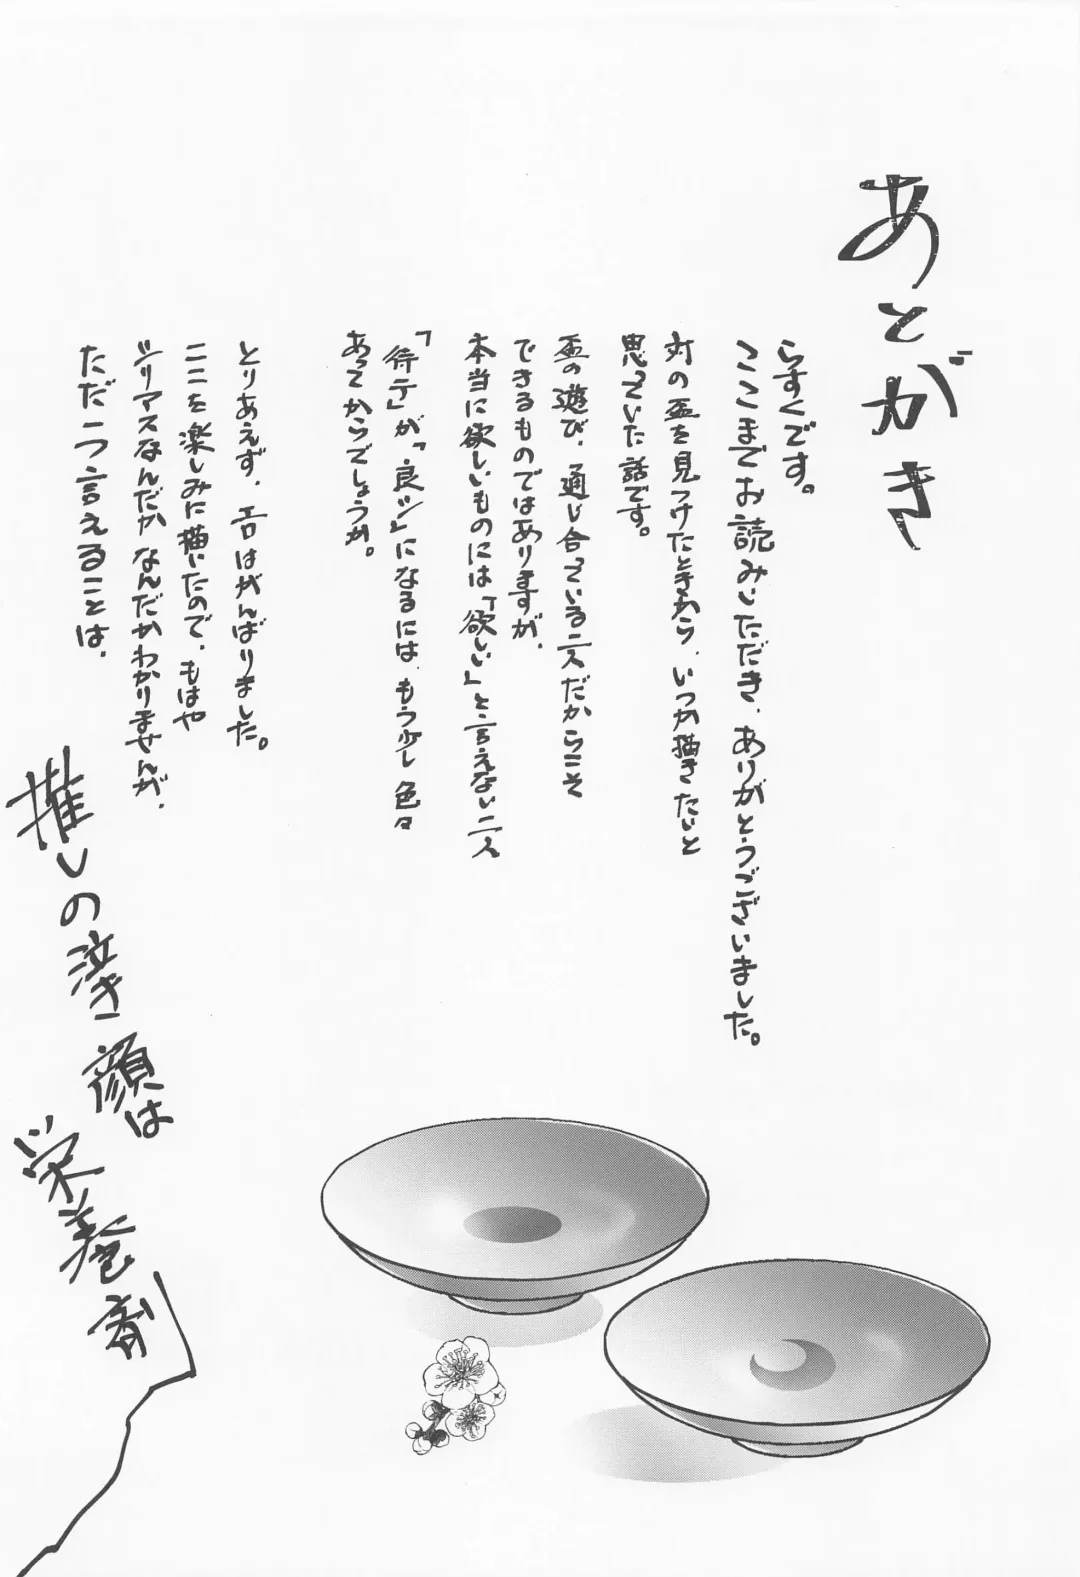 あとがき
らすくです。
ここまでお読みいただき、ありがとうございました。
対の盃を見つけたときから、いつか描きたいと
思っていた話です。
盃の遊び、通じ合っている二人だからこそ
できるものではありますが、
本当に欲しいものには「欲しい」と言えない二人
「待テ」が「良シ」になるには、もう少し色々
あってからでしょうか。
とりあえず、エロはがんばりました。
ここを楽しみに描いたので、もはや
シリアスなんだかなんだかわかりませんが、
ただ一つ言えることは、
推しの泣き顔は
栄養剤